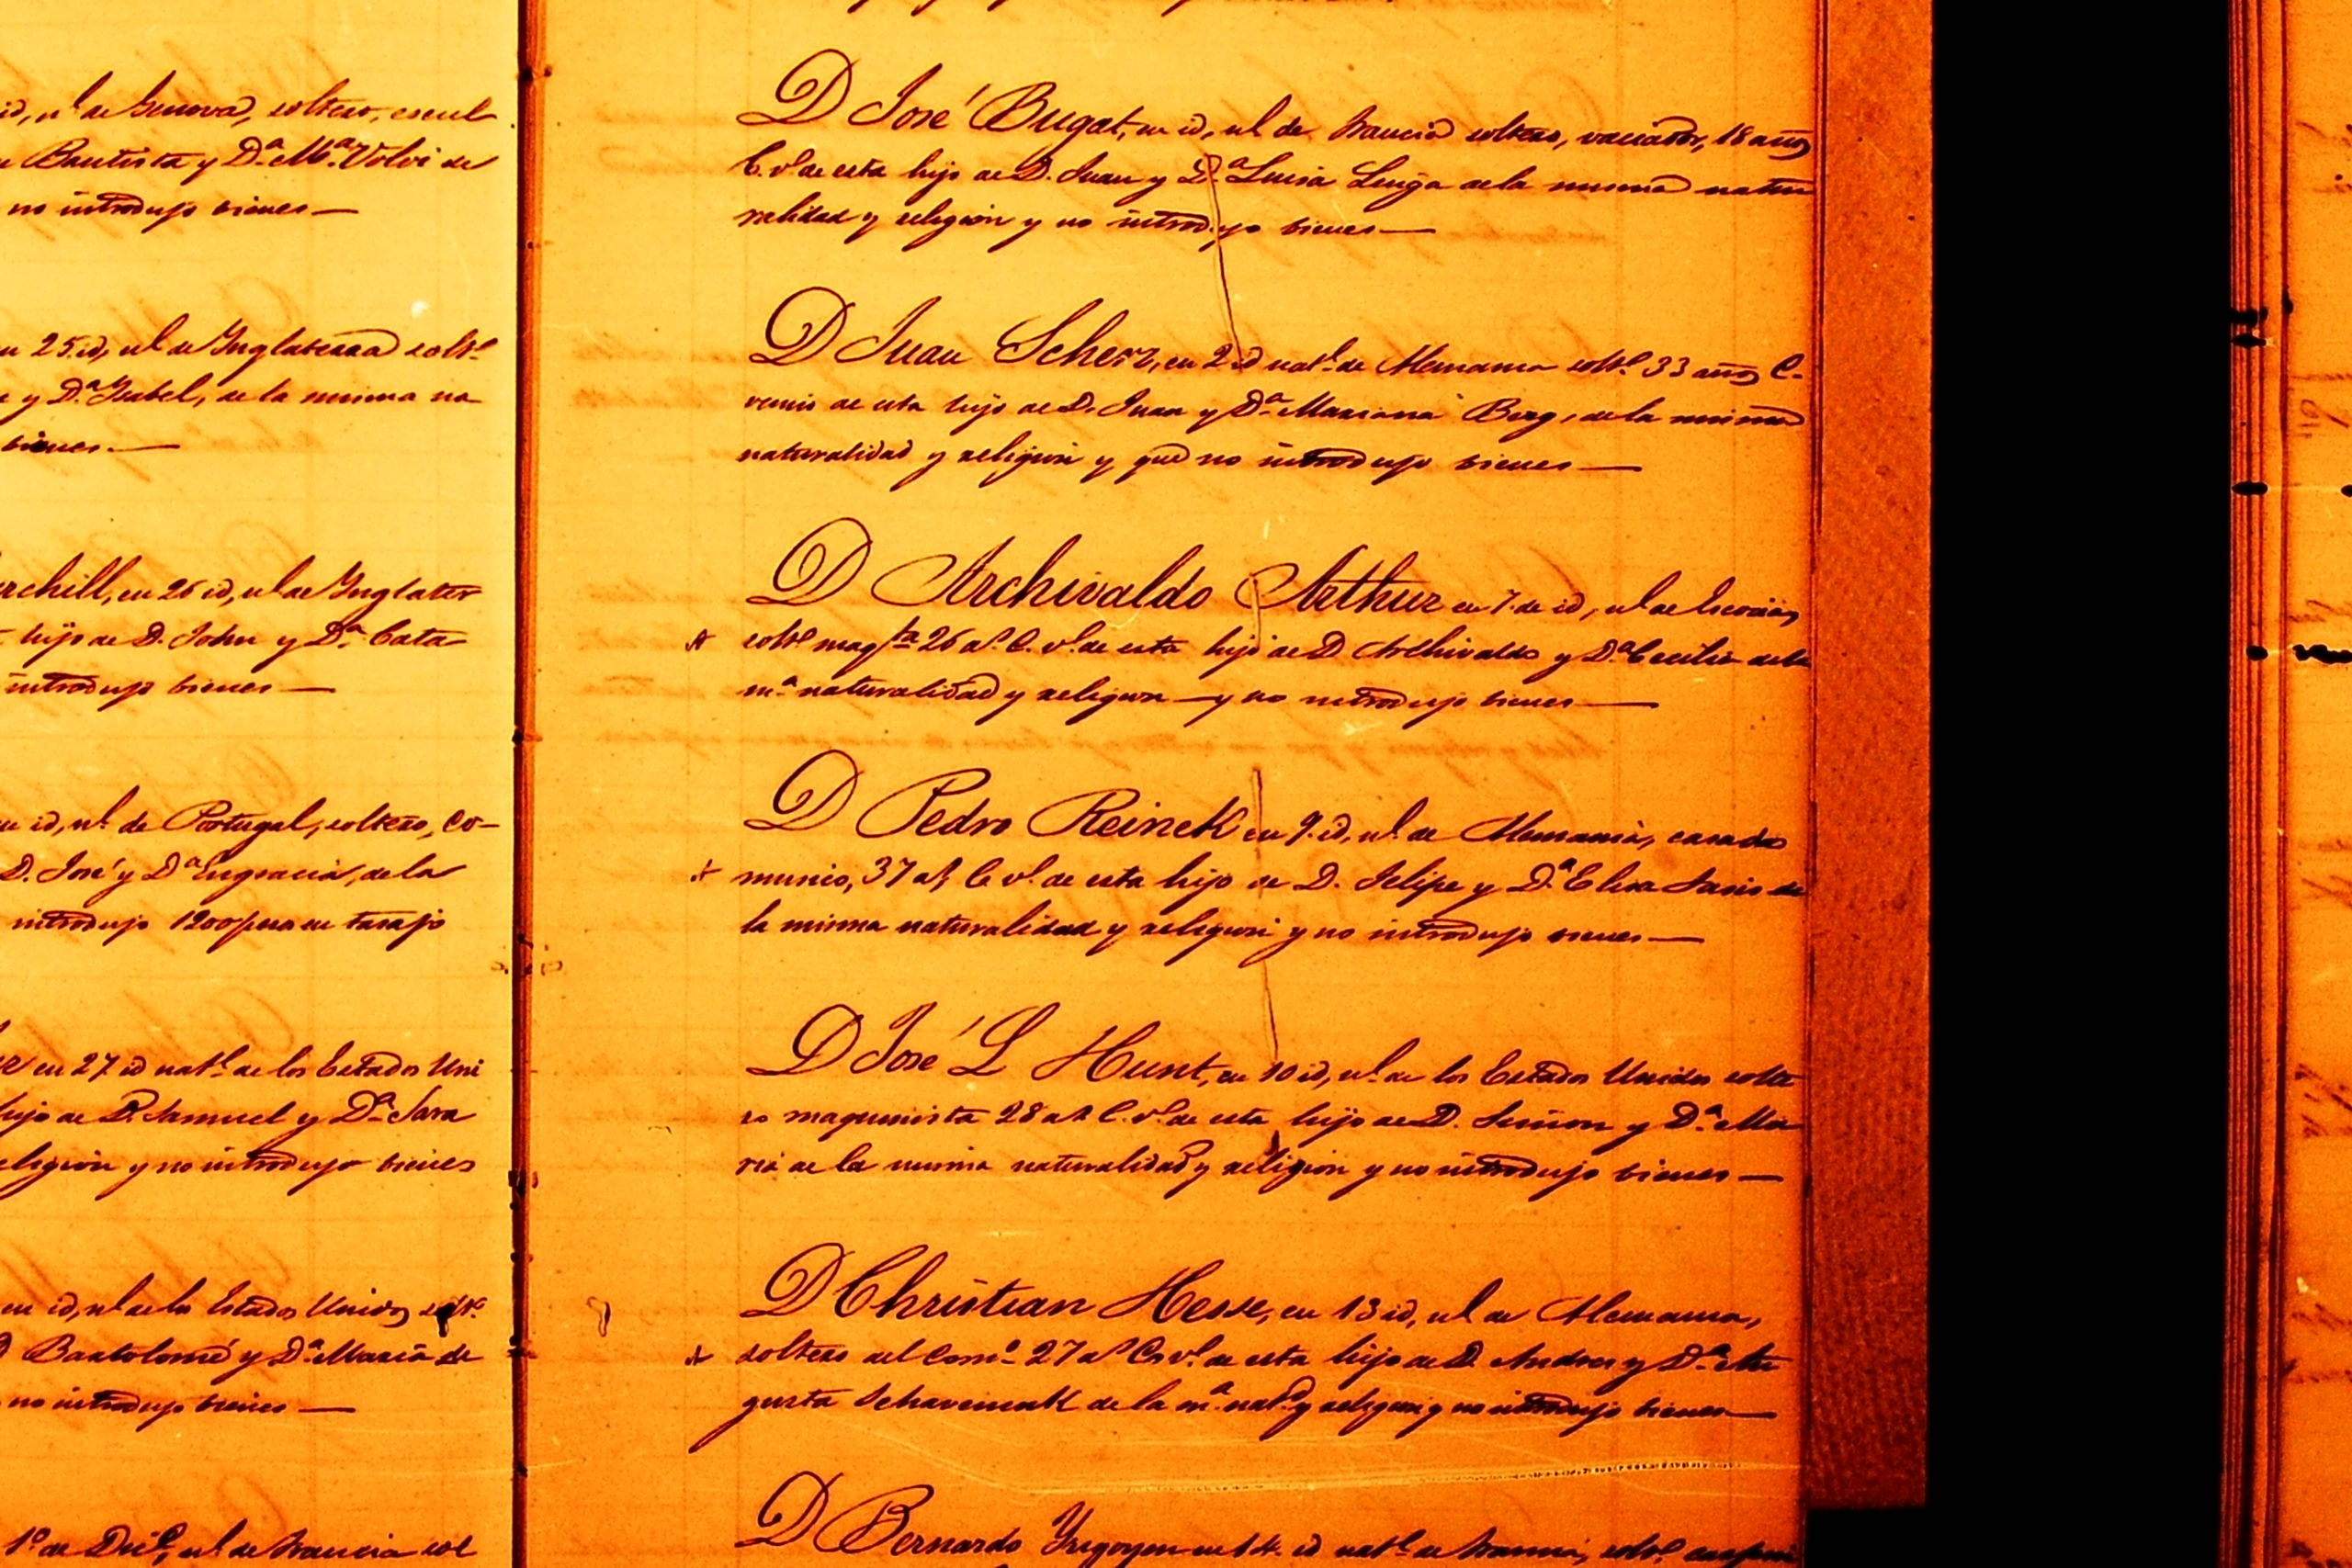 id, nl de Genova, soltero, escul
Bautista y Da. Ma. Volvi de
no introdujo bienes—
en 25. id, nl de Ynglaterra solto.
y Da. Ysabel, de la misma na
bienes.—
rchill, en 26 id, nl de Ynglater
hijo de D. John y Da. Cata
introdujo bienes—
en id, nl. de Portugal, soltero, co—
D. José y Da. Engracia, de la
introdujo 1200 pesos en tasajo
en 27 id natl. de los Estados Uni
hijo de D. Samuel y Da. Sara
religion y no introdujo bienes
en id, nl de los Estados Unidos solto.
D Bartolomé y Da. Maria de
no introdujo bienes—
1o. de Dice, nl. de Francia sol
D José Bugat, en id, nl de Francia soltero, vaciador, 18 años
C. vo. de esta hijo de D. Juan y Da. Luisa de la misma natu
ralidad y religion y no introdujo bienes—
D Juan Scherz, en 2 id natl. de Alemania solto. 33 años C.
vecino de esta hijo de D. Juan y Da. Mariana Berg, de la misma
naturalidad y religion y que no introdujo bienes—
D Archivaldo Arthur en 7 de id, nl de Escocia,
solto magta. 26 as. C. vo. de esta hijo de D Archivaldo y Da. Cecilia de la
ma. naturalidad y religion—y no introdujo bienes—
D Pedro Reinek en 9. id, nl. de Alemania, casado
musico, 37 as, C vo. de esta hijo de D. Felipe y Da. Elisa de
la misma naturalidad y religion y no introdujo bienes—
D José L Hunt, en 10 id, nl. de los Estados Unidos solte
ro maquinista 28 as C. vo. de esta hijo de D. Simon y Da. Ma
ria de la misma naturalidad y religion y no introdujo bienes—
D Christian Hesse, en 13 id, nl de Alemania,
soltero del Como. 27 as Co vo. de esta hijo de D. Andres y Da. Au
gusta de la ma. natd. y religion y no introdujo bienes—
D Bernardo Yrigoyen en 14. id natl. de Francia, solto.